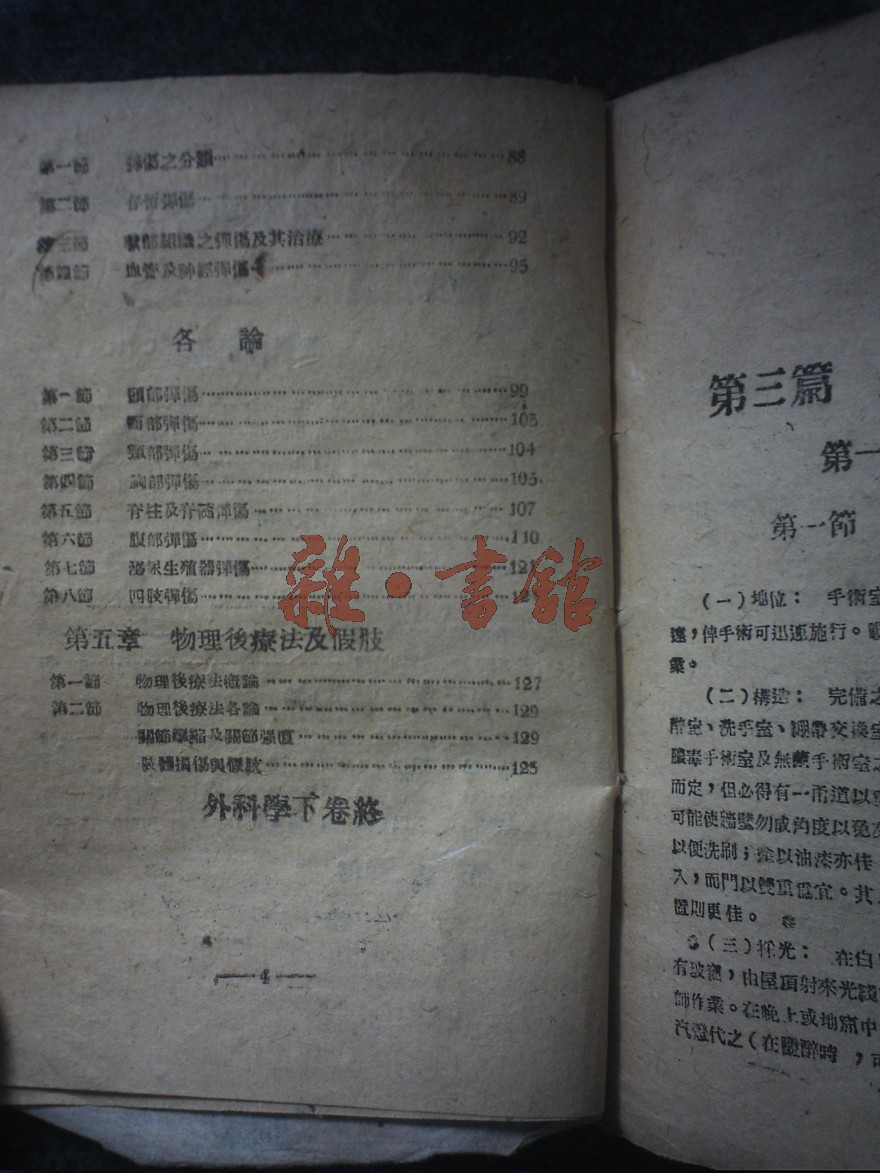 第一節 彈傷之分類 88
第二節 存留彈傷 89
第三節 軟部組織之彈傷及其治療 92
第四節 血管及神經彈傷 95
各 論
第一節 頭部彈傷 99
第二節 面部彈傷 103
第三節 頸部彈傷 104
第四節 胸部彈傷 105
第五節 脊柱及脊髓彈傷 107
第六節 腹部彈傷 110
第七節 泌尿生殖器彈傷 121
第八節 四肢彈傷
第五章 物理後療法及假肢
第一節 物理後療法概論 127
第二節 物理後療法各論 129
關節攣縮及關節強直 129
肢體損傷與假肢 125
外科學下卷終
—4—
雜·書館
第三篇
第一
第一節
(一)地位: 手術室
速,俾手術可迅速施行。
業。
(二)構造: 完備之
醉室、洗手室、繃帶交換室
膿毒手術室及無菌手術室之
而定,但必得有一甬道以
可能使牆壁勿成角度以免
以便洗刷;塗以油漆亦佳
入,而門以雙重爲宜。其
置則更佳。
(三)採光: 在白
有玻璃,由屋頂射來光綫
師作業。在晚上或地窟中
汽燈代之(在麻醉時,可